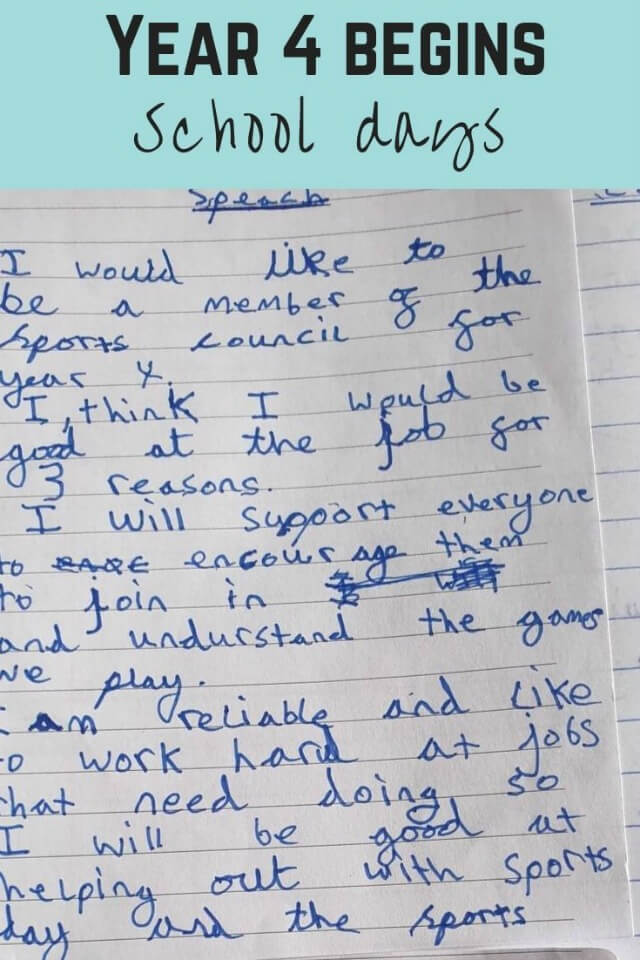 YEAR 4 BEGINS
school days
Speach
I would like to
be a member of the
sports council for
year 4.
I, think I would be
good at the job for
3 reasons.
I will support everyone
to encourage them
to join in
and undurstand the games
we play.
I am reliable and like
to work hard at jobs
that need doing so
I will be good at
helping out with sports
day and the sports